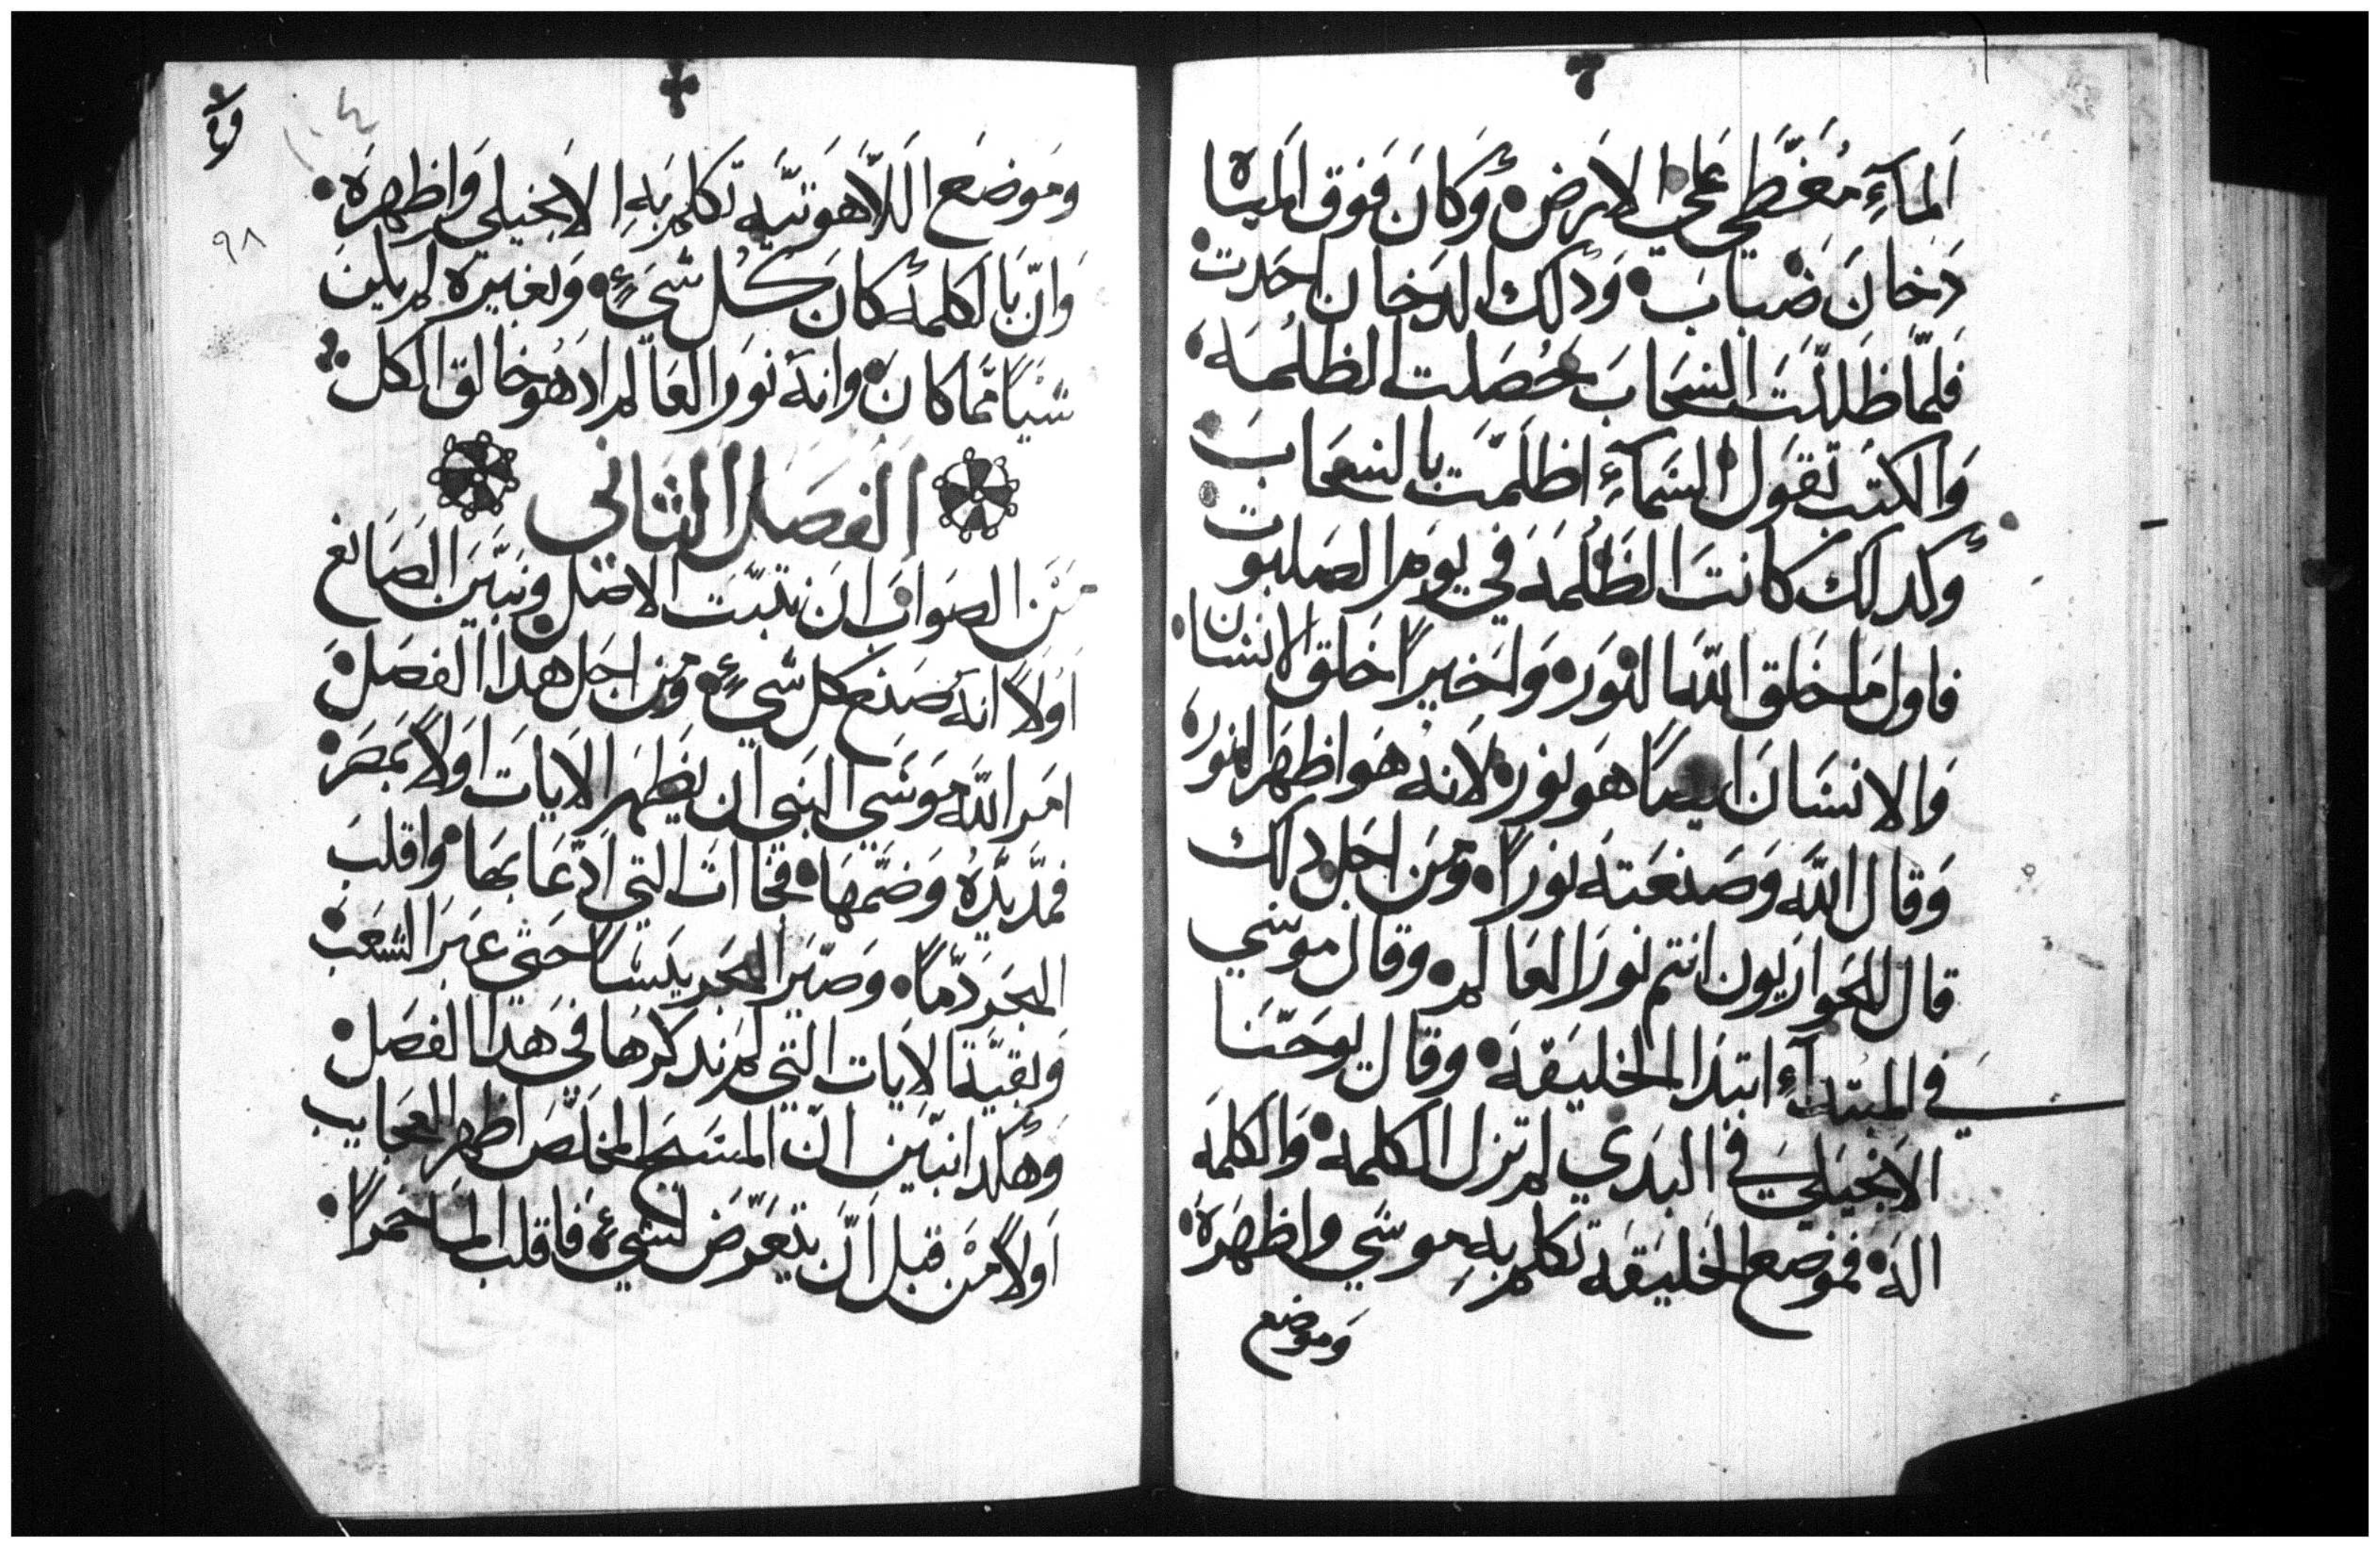 المآءِ مُغَطّي علي الارض • وكانَ فوق المياه
دَخانَ ضباب • ودلك الدخان احدت
فلمّا ظللّت السَحَابَ حصَلت الظلمه •
والكتب تقول السمآءِ اظلمّت بالسحاب •
وكدلك كانت الظلمه في يوم الصلبوت
فاول ما خلق الله النور • واخيراً خلق الانسان •
والانسان ايضاً هو نور • لانه هو اظهر النور •
وقال الله وصنعته نوراً • ومن اجل دلك
قال للحواريون انتم نور العالم • وقال موسي
في المبتدآءِ ابتدا الخليقه • وقال يوحنا
الانجيلي في البدي لم تزل الكلمه • والكلمه
اله • فموضع الخليقه تكلم بهِ موسي واظهره •
وموضع
٩٨
وموضع اللاهوتيّه تكلم بهِ الانجيلي واظهره •
وانّ بالكلمه كان كل شيءٍ • وبغيره لم يكن
شياً ممّا كان • وانه نور العالم اد هو خالق الكل
الفصل الثاني
من الصواب ان نتبّت الاصل ونبيّن الصانع
اولاً انه صنع كل شيءٍ • ومن اجل هدا الفصل •
امر الله موسي النبي ان يظهر الايات اولاً بمصر •
فمدّ يدُه وضمّها • فجاات التي ادّعا بها • واقلب
البحر دّماً • وصيّر البحر يبساً حتي عبر الشعب •
وبقيّة الايات التي لم ندكرها في هدا الفصل •
وهكدا نبيّن انّ المسيح المخلّص اظهر العجايب
اولاً من قبل انّ يتعرّض لشيءٍ • فاقلب الما خمراً •